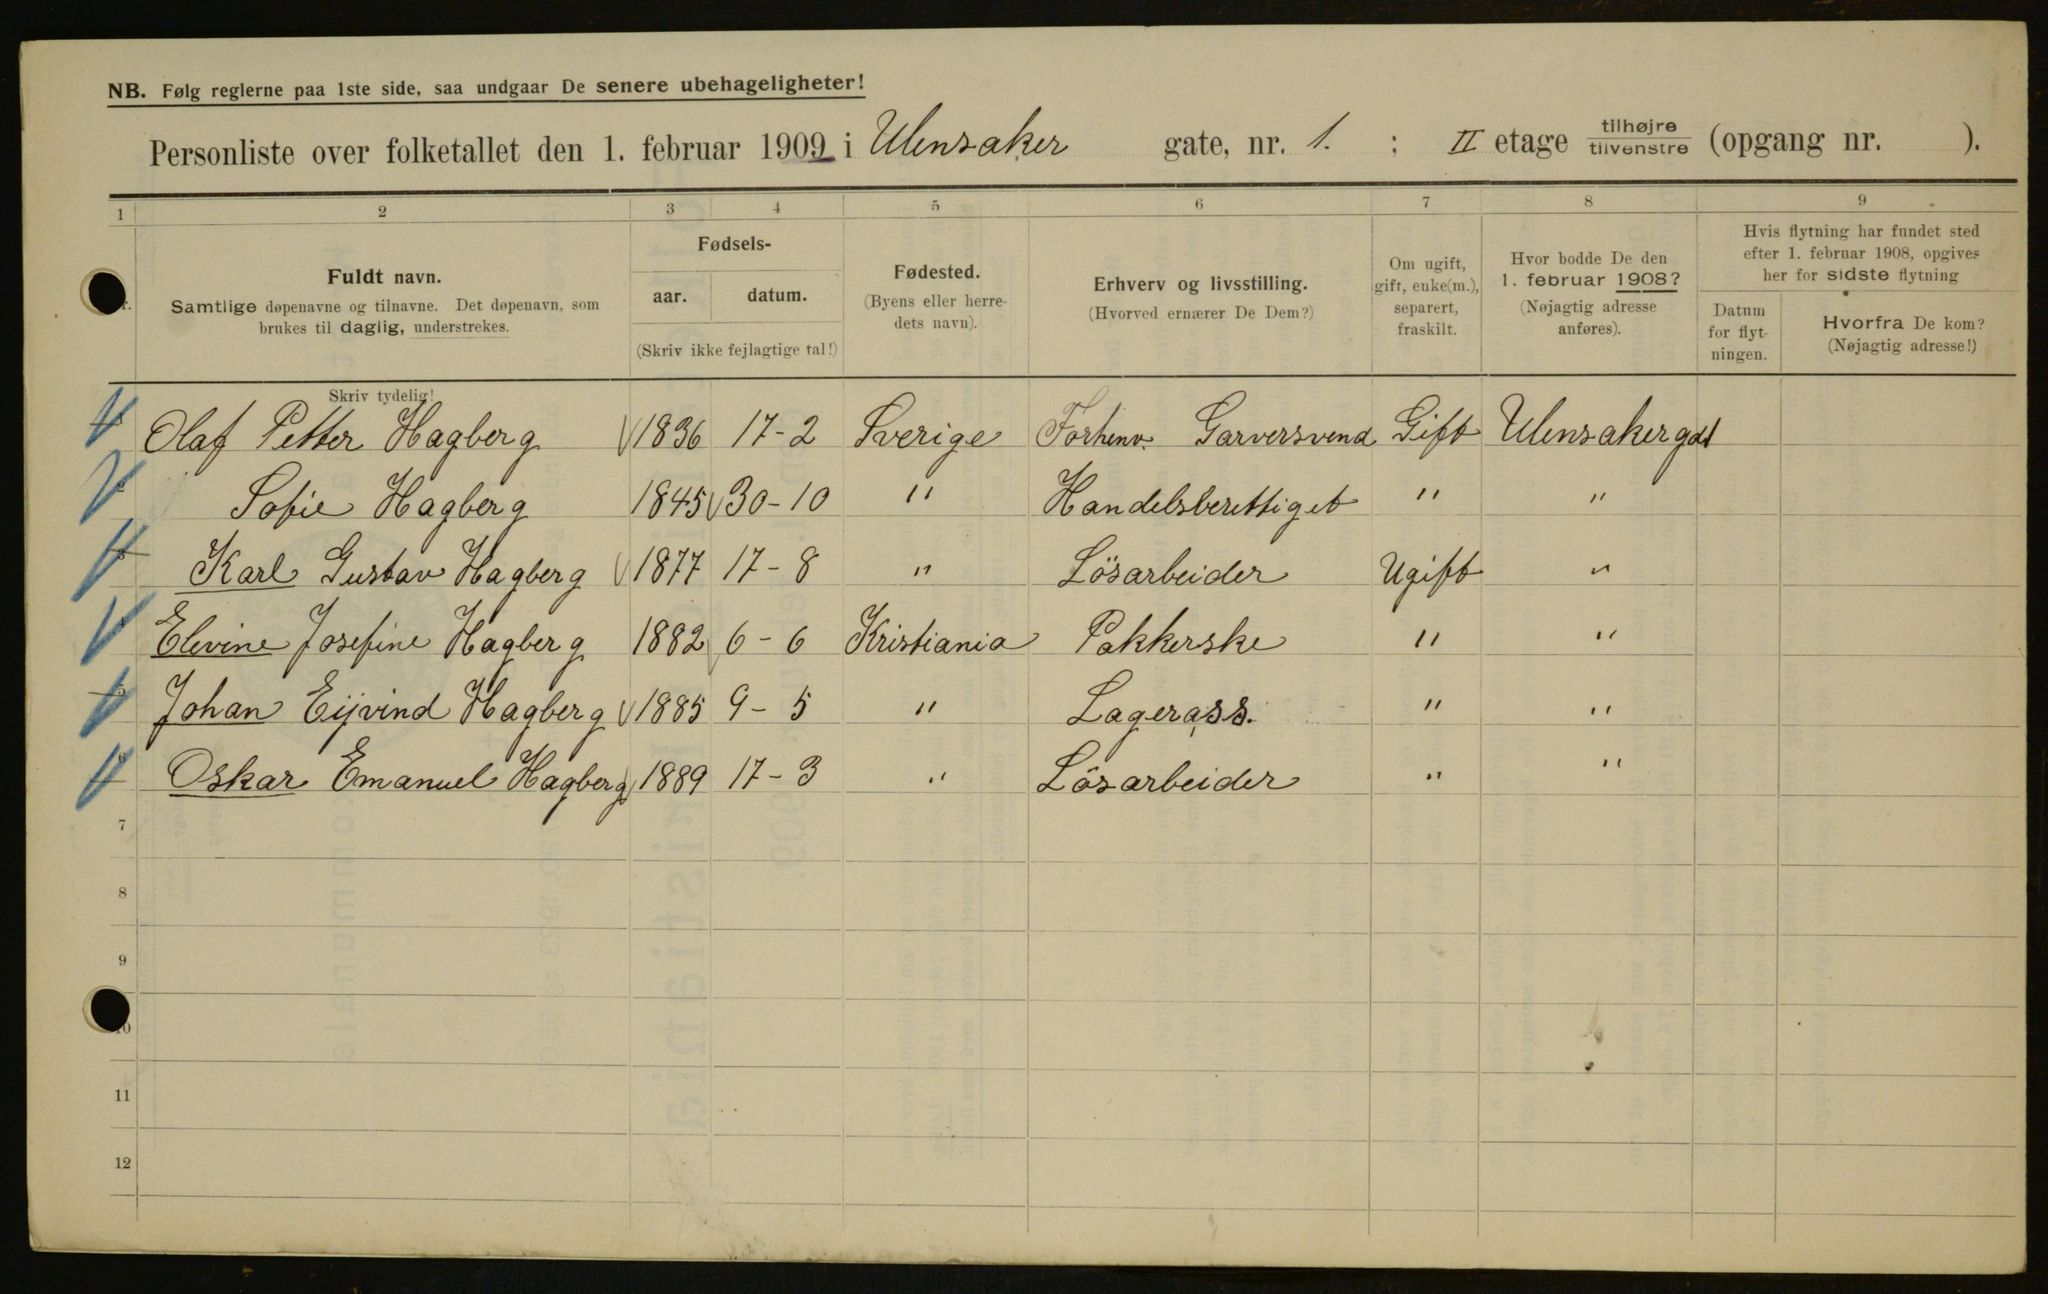 NB. Følg reglerne paa 1ste side, saa undgaar De senere ubehageligheter!
Personliste over folketallet den 1. februar 1909 i Ulensaker gate, nr. 1. : II etage tilhøjre tilvenstre (opgang nr. ).
1 2 3 4 5 6 7 8 9
Fuldt navn. Samtlige døpenavne og tilnavne. Det døpenavn, som
brukes til daglig, understrekes.
Fødsels-
aar. datum.
(Skriv ikke fejlagtige tal!)
Fødested.
(Byens eller herre-
dets navn).
Erhverv og livsstilling.
(Hvorved ernærer De Dem?)
Om ugift,
gift, enke(m.),
separert,
fraskilt.
Hvor bodde De den
1. februar 1908?
(Nøjagtig adresse
anføres).
Hvis flytning har fundet sted
efter 1. februar 1908, opgives
her for sidste flytning
Datum
for flyt-
ningen.
Hvorfra De kom?
(Nøjagtig adresse!)
Skriv tydelig!
Olaf Petter Hagberg 1836 17-2 Sverige Forhenv. Garversvend Gift Ulensakergat
Sofie Hagberg 1845 30-10 " Handelsberettiget " "
Karl Gustav Hagberg 1877 17-8 " Lösarbeider Ugift "
Elevine Josefine Hagberg 1882 6-6 Kristiania Pakkerske " "
Johan Eijvind Hagberg 1885 9-5 " Lagerass. " "
Oskar Emanuel Hagberg 1889 17-3 " Lösarbeider " "
7
8
9
10
11
12